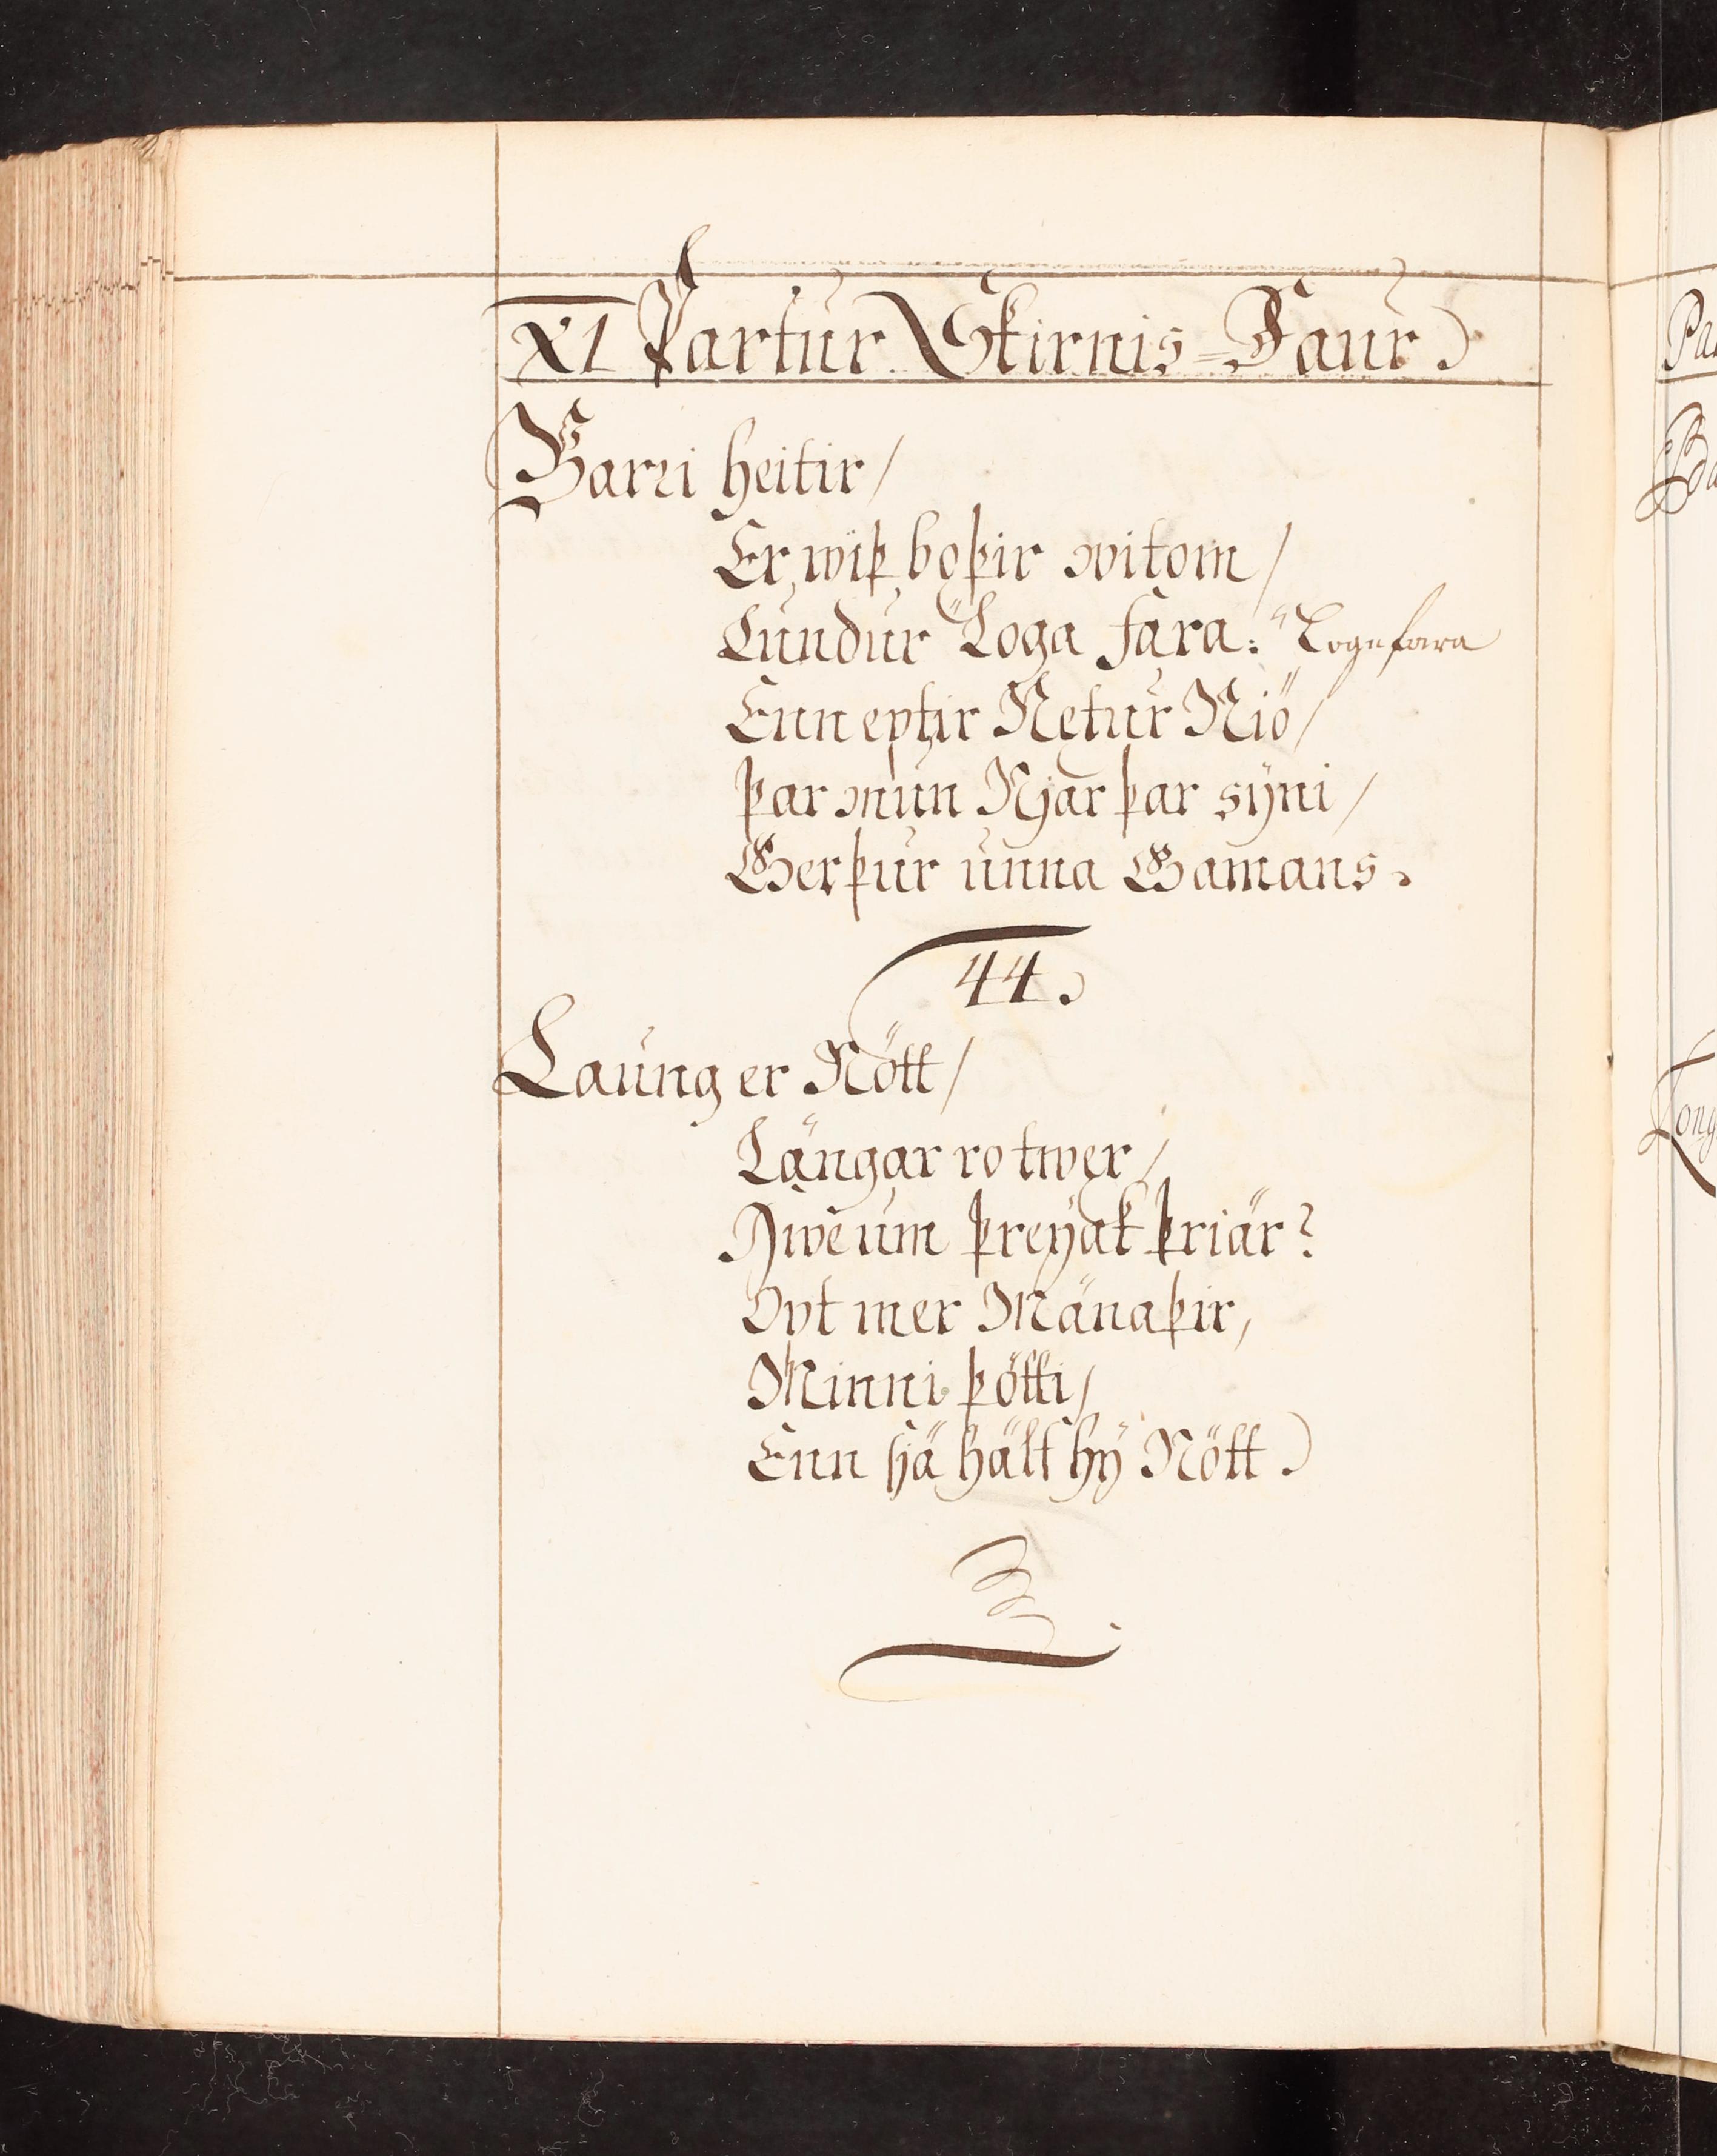 XI Partur Skirnis=Faur.
Barri heitir/
Er wiþ boþir witom/
Lundur "Loga fara: "Lognfara
Enn eptir Nętur Niö/
þar mun Njarþar sÿni/
Gerþur unna Gamans.
44.
Laung er Nött/
Längar ro twęr/
Hwe um þreyak þriär?
Opt mer Mänaþir,
Minni þötti/
Enn sjä hälf hÿ Nött.